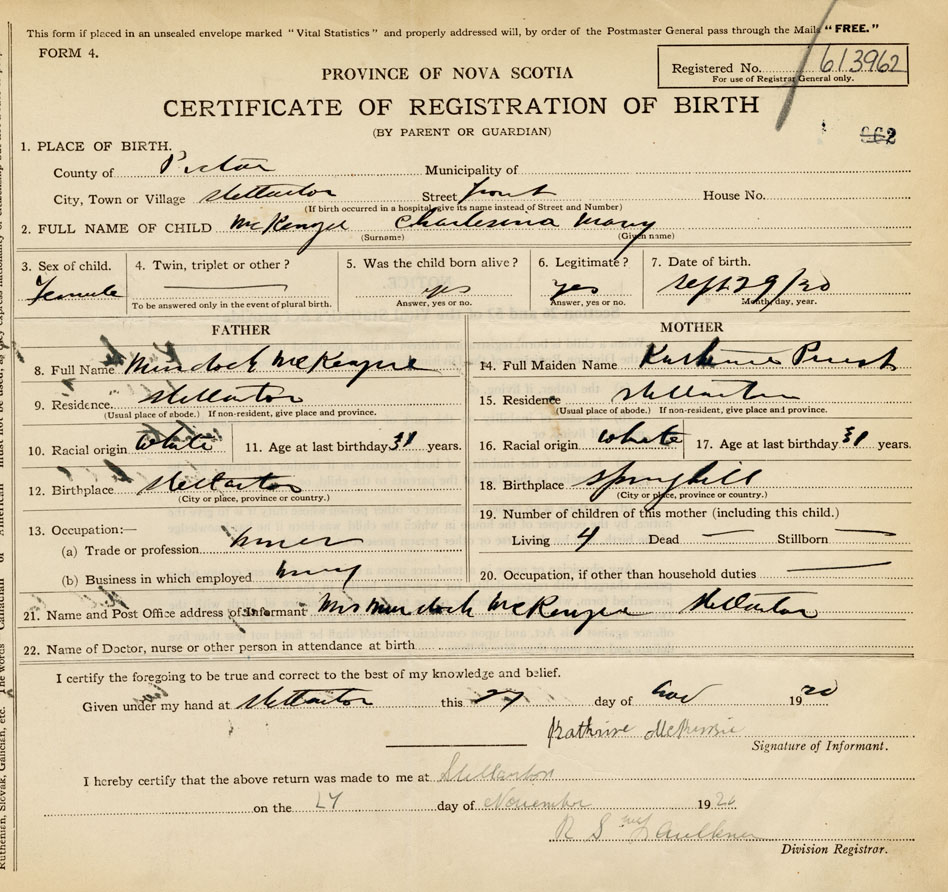 This form if placed in an unsealed envelope marked "Vital Statistics" and properly addressed will, by order of the Postmaster General pass through the Mails "FREE."
FORM 4.
Registered No. 613962
For use of Registrar General only.
PROVINCE OF NOVA SCOTIA
CERTIFICATE OF REGISTRATION OF BIRTH
(BY PARENT OR GUARDIAN)
662
1. PLACE OF BIRTH.
County of Pictou Municipality of
City, Town or Village Stellarton Street front House No.
(If birth occurred in a hospital, give its name instead of Street and Number)
2. FULL NAME OF CHILD McKenzie Charlesina Mary
(Surname) (Given name)
3. Sex of child. 4. Twin, triplet or other? 5. Was the child born alive? 6. Legitimate? 7. Date of birth.
Female yes yes Sept 29/20
To be answered only in the event of plural birth. Answer, yes or no. Answer, yes or no. Month, day, year.
FATHER
8. Full Name Murdoch McKenzie
9. Residence Stellarton
(Usual place of abode.) If non-resident, give place and province.
10. Racial origin White 11. Age at last birthday 31 years.
12. Birthplace Stellarton
(City or place, province or country.)
13. Occupation:—
(a) Trade or profession miner
(b) Business in which employed
MOTHER
14. Full Maiden Name Katherine Priest
15. Residence Stellarton
(Usual place of abode.) If non-resident, give place and province.
16. Racial origin white 17. Age at last birthday 31 years.
18. Birthplace Springhill
(City or place, province or country.)
19. Number of children of this mother (including this child.)
Living 4 Dead Stillborn
20. Occupation, if other than household duties
21. Name and Post Office address of Informant Mrs Murdoch McKenzie Stellarton
22. Name of Doctor, nurse or other person in attendance at birth
I certify the foregoing to be true and correct to the best of my knowledge and belief.
Given under my hand at Stellarton this 27 day of Nov 1920
Kathrine McKenzie
Signature of Informant.
I hereby certify that the above return was made to me at Stellarton
on the 27 day of November 1920
R S Faulkner
Division Registrar.